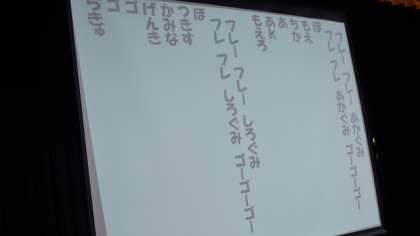 フレー フレー あかぐみ ゴーゴーゴー
フレ フレ あかぐみ ゴーゴーゴー
ぼ
もえ
ちか
あ
あk
もえろ
フレー フレー しろぐみ ゴーゴーゴー
フレ フレ しろぐみ ゴーゴーゴー
ぼ
つきす
かみな
げんき
ゴ
ゴ
うきゅ